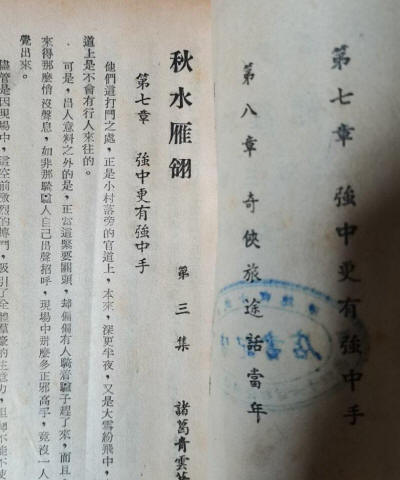 第七章 強中更有強中手
第八章 奇俠旅途話當年
秋水雁翎 第三集 諸葛青雲著
第七章 強中更有強中手
他們這打鬥之處，正是小村落旁的官道上，本來，深更半夜，又是大雪紛飛中，
道上是不會有行人來往的。
可是，出人意料之外的是，正當這緊要關頭，却偏偏有人騎着驢子趕了來，而且，
來得那麼悄沒聲息，如非那騎驢人自己出聲招呼，現場中那麼多正邪高手，竟沒一人
覺出來。
儘管是因現場中，這空前激烈的搏鬥，吸引了全體羣豪的注意力，但却不能不使